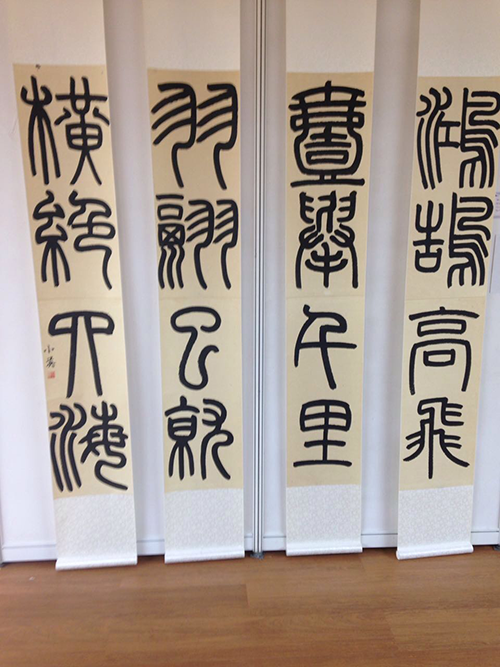 鴻鵠高飛
壹舉千里
羽翮已就
橫絕四海